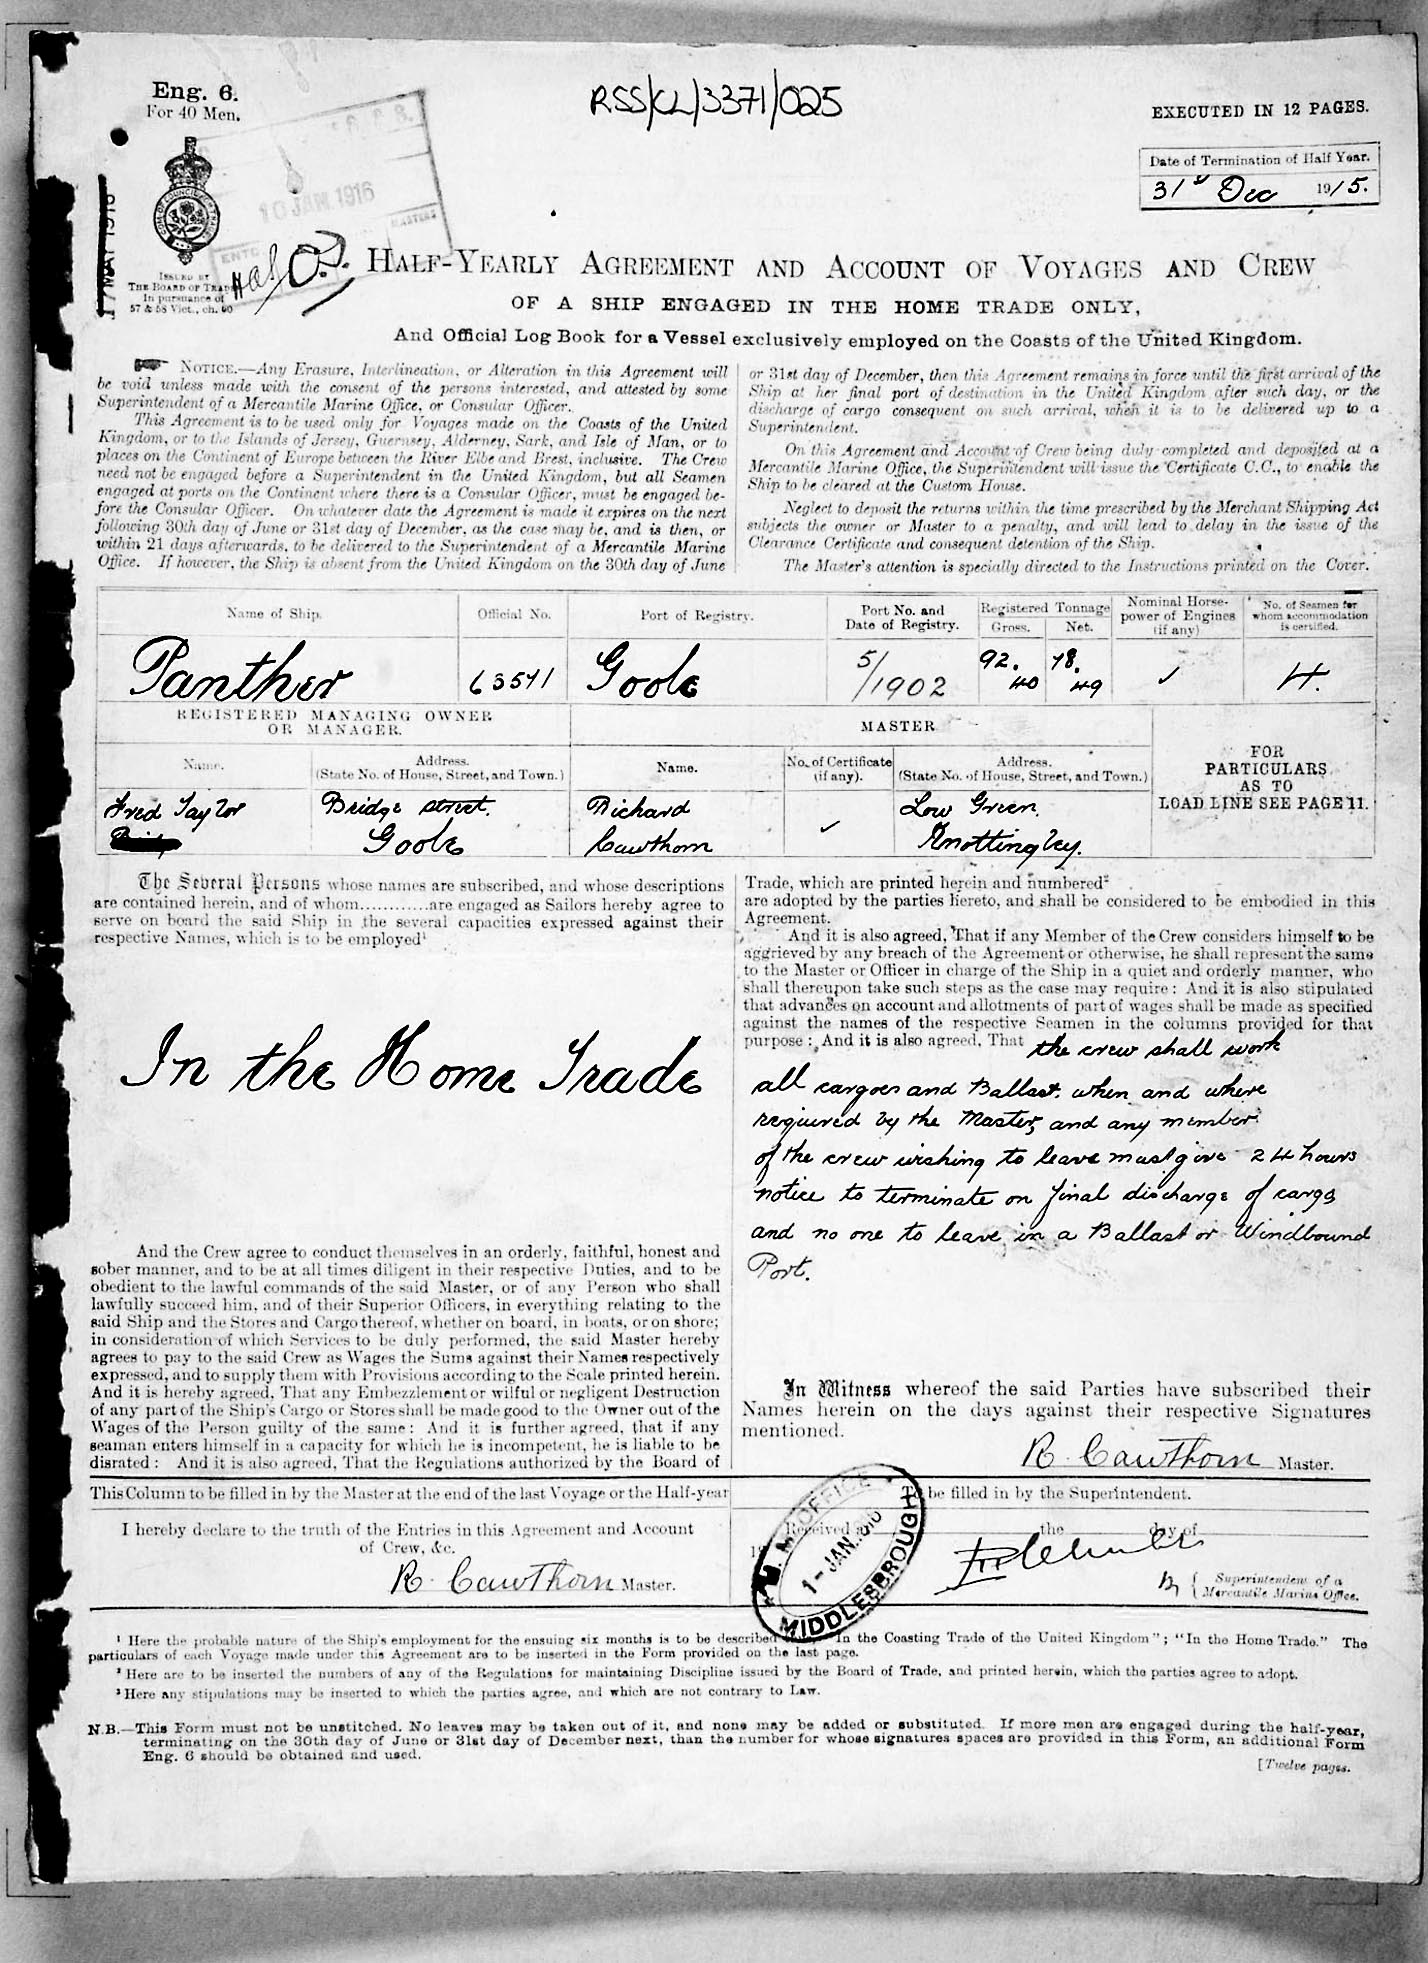 Eng. 6.
For 40 Men.
RSS/CL/3371/025
EXECUTED IN 12 PAGES.
Date of Termination of Half Year.
31st Dec 1915.
10 JAN 1916
MASTERS
ISSUED BY
THE BOARD OF TRADE
In pursuance of
57 & 58 Vict., ch. 60
HALF-YEARLY AGREEMENT AND ACCOUNT OF VOYAGES AND CREW
OF A SHIP ENGAGED IN THE HOME TRADE ONLY,
And Official Log Book for a Vessel exclusively employed on the Coasts of the United Kingdom.
NOTICE.—Any Erasure, Interlineation, or Alteration in this Agreement will
be void unless made with the consent of the persons interested, and attested by some
Superintendent of a Mercantile Marine Office, or Consular Officer.
This Agreement is to be used only for Voyages made on the Coasts of the United
Kingdom, or to the Islands of Jersey, Guernsey, Alderney, Sark, and Isle of Man, or to
places on the Continent of Europe between the River Elbe and Brest, inclusive. The Crew
need not be engaged before a Superintendent in the United Kingdom, but all Seamen
engaged at ports on the Continent where there is a Consular Officer, must be engaged be-
fore the Consular Officer. On whatever date the Agreement is made it expires on the next
following 30th day of June or 31st day of December, as the case may be, and is then, or
within 21 days afterwards, to be delivered to the Superintendent of a Mercantile Marine
Office. If however, the Ship is absent from the United Kingdom on the 30th day of June
or 31st day of December, then this Agreement remains in force until the first arrival of the
Ship at her final port of destination in the United Kingdom after such day, or the
discharge of cargo consequent on such arrival, when it is to be delivered up to a
Superintendent.
On this Agreement and Account of Crew being duly completed and deposited at a
Mercantile Marine Office, the Superintendent will issue the Certificate C.C., to enable the
Ship to be cleared at the Custom House.
Neglect to deposit the returns within the time prescribed by the Merchant Shipping Act
subjects the owner or Master to a penalty, and will lead to delay in the issue of the
Clearance Certificate and consequent detention of the Ship.
The Master's attention is specially directed to the Instructions printed on the Cover.
Name of Ship. Official No. Port of Registry. Port No. and Date of Registry. Registered Tonnage Gross. Net. Nominal Horse-power of Engines (if any) No. of Seamen for whom accommodation is certified.
Panther 63571 Goole 5/1902 92.40 78.49 ✓ 4.
REGISTERED MANAGING OWNER
OR MANAGER.
MASTER
Name. Address. (State No. of House, Street, and Town.) Name. No. of Certificate (if any). Address. (State No. of House, Street, and Town.)
FOR
PARTICULARS
AS TO
LOAD LINE SEE PAGE 11.
Fred Taylor Bridge Street. Richard Low Green.
Goole Cawthorn ✓ Knottingley.
The Several Persons whose names are subscribed, and whose descriptions
are contained herein, and of whom............are engaged as Sailors hereby agree to
serve on board the said Ship in the several capacities expressed against their
respective Names, which is to be employed¹
In the Home Trade
And the Crew agree to conduct themselves in an orderly, faithful, honest and
sober manner, and to be at all times diligent in their respective Duties, and to be
obedient to the lawful commands of the said Master, or of any Person who shall
lawfully succeed him, and of their Superior Officers, in everything relating to the
said Ship and the Stores and Cargo thereof, whether on board, in boats, or on shore;
in consideration of which Services to be duly performed, the said Master hereby
agrees to pay to the said Crew as Wages the Sums against their Names respectively
expressed, and to supply them with Provisions according to the Scale printed herein.
And it is hereby agreed, That any Embezzlement or wilful or negligent Destruction
of any part of the Ship's Cargo or Stores shall be made good to the Owner out of the
Wages of the Person guilty of the same: And it is further agreed, that if any
seaman enters himself in a capacity for which he is incompetent, he is liable to be
disrated: And it is also agreed, That the Regulations authorized by the Board of
Trade, which are printed herein and numbered²
are adopted by the parties hereto, and shall be considered to be embodied in this
Agreement.
And it is also agreed, That if any Member of the Crew considers himself to be
aggrieved by any breach of the Agreement or otherwise, he shall represent the same
to the Master or Officer in charge of the Ship in a quiet and orderly manner, who
shall thereupon take such steps as the case may require: And it is also stipulated
that advances on account and allotments of part of wages shall be made as specified
against the names of the respective Seamen in the columns provided for that
purpose: And it is also agreed, That the crew shall work
all cargoes and Ballast. when and where
required by the Master, and any member
of the crew wishing to leave must give 24 hours
notice to terminate on final discharge of cargo
and no one to leave in a Ballast or Windbound
Port.
In Witness whereof the said Parties have subscribed their
Names herein on the days against their respective Signatures
mentioned.
R. Cawthorn Master.
This Column to be filled in by the Master at the end of the last Voyage or the Half-year
I hereby declare to the truth of the Entries in this Agreement and Account
of Crew, &c.
R. Cawthorn Master.
To be filled in by the Superintendent.
Received at the day of
19
M. M. OFFICE
1-JAN.
MIDDLESBROUGH
Superintendent of a
Mercantile Marine Office.
¹ Here the probable nature of the Ship's employment for the ensuing six months is to be described In the Coasting Trade of the United Kingdom"; "In the Home Trade." The
particulars of each Voyage made under this Agreement are to be inserted in the Form provided on the last page.
² Here are to be inserted the numbers of any of the Regulations for maintaining Discipline issued by the Board of Trade, and printed herein, which the parties agree to adopt.
³ Here any stipulations may be inserted to which the parties agree, and which are not contrary to Law.
N.B.—This Form must not be unstitched. No leaves may be taken out of it, and none may be added or substituted. If more men are engaged during the half-year,
terminating on the 30th day of June or 31st day of December next, than the number for whose signatures spaces are provided in this Form, an additional Form
Eng. 6 should be obtained and used.
[Twelve pages.